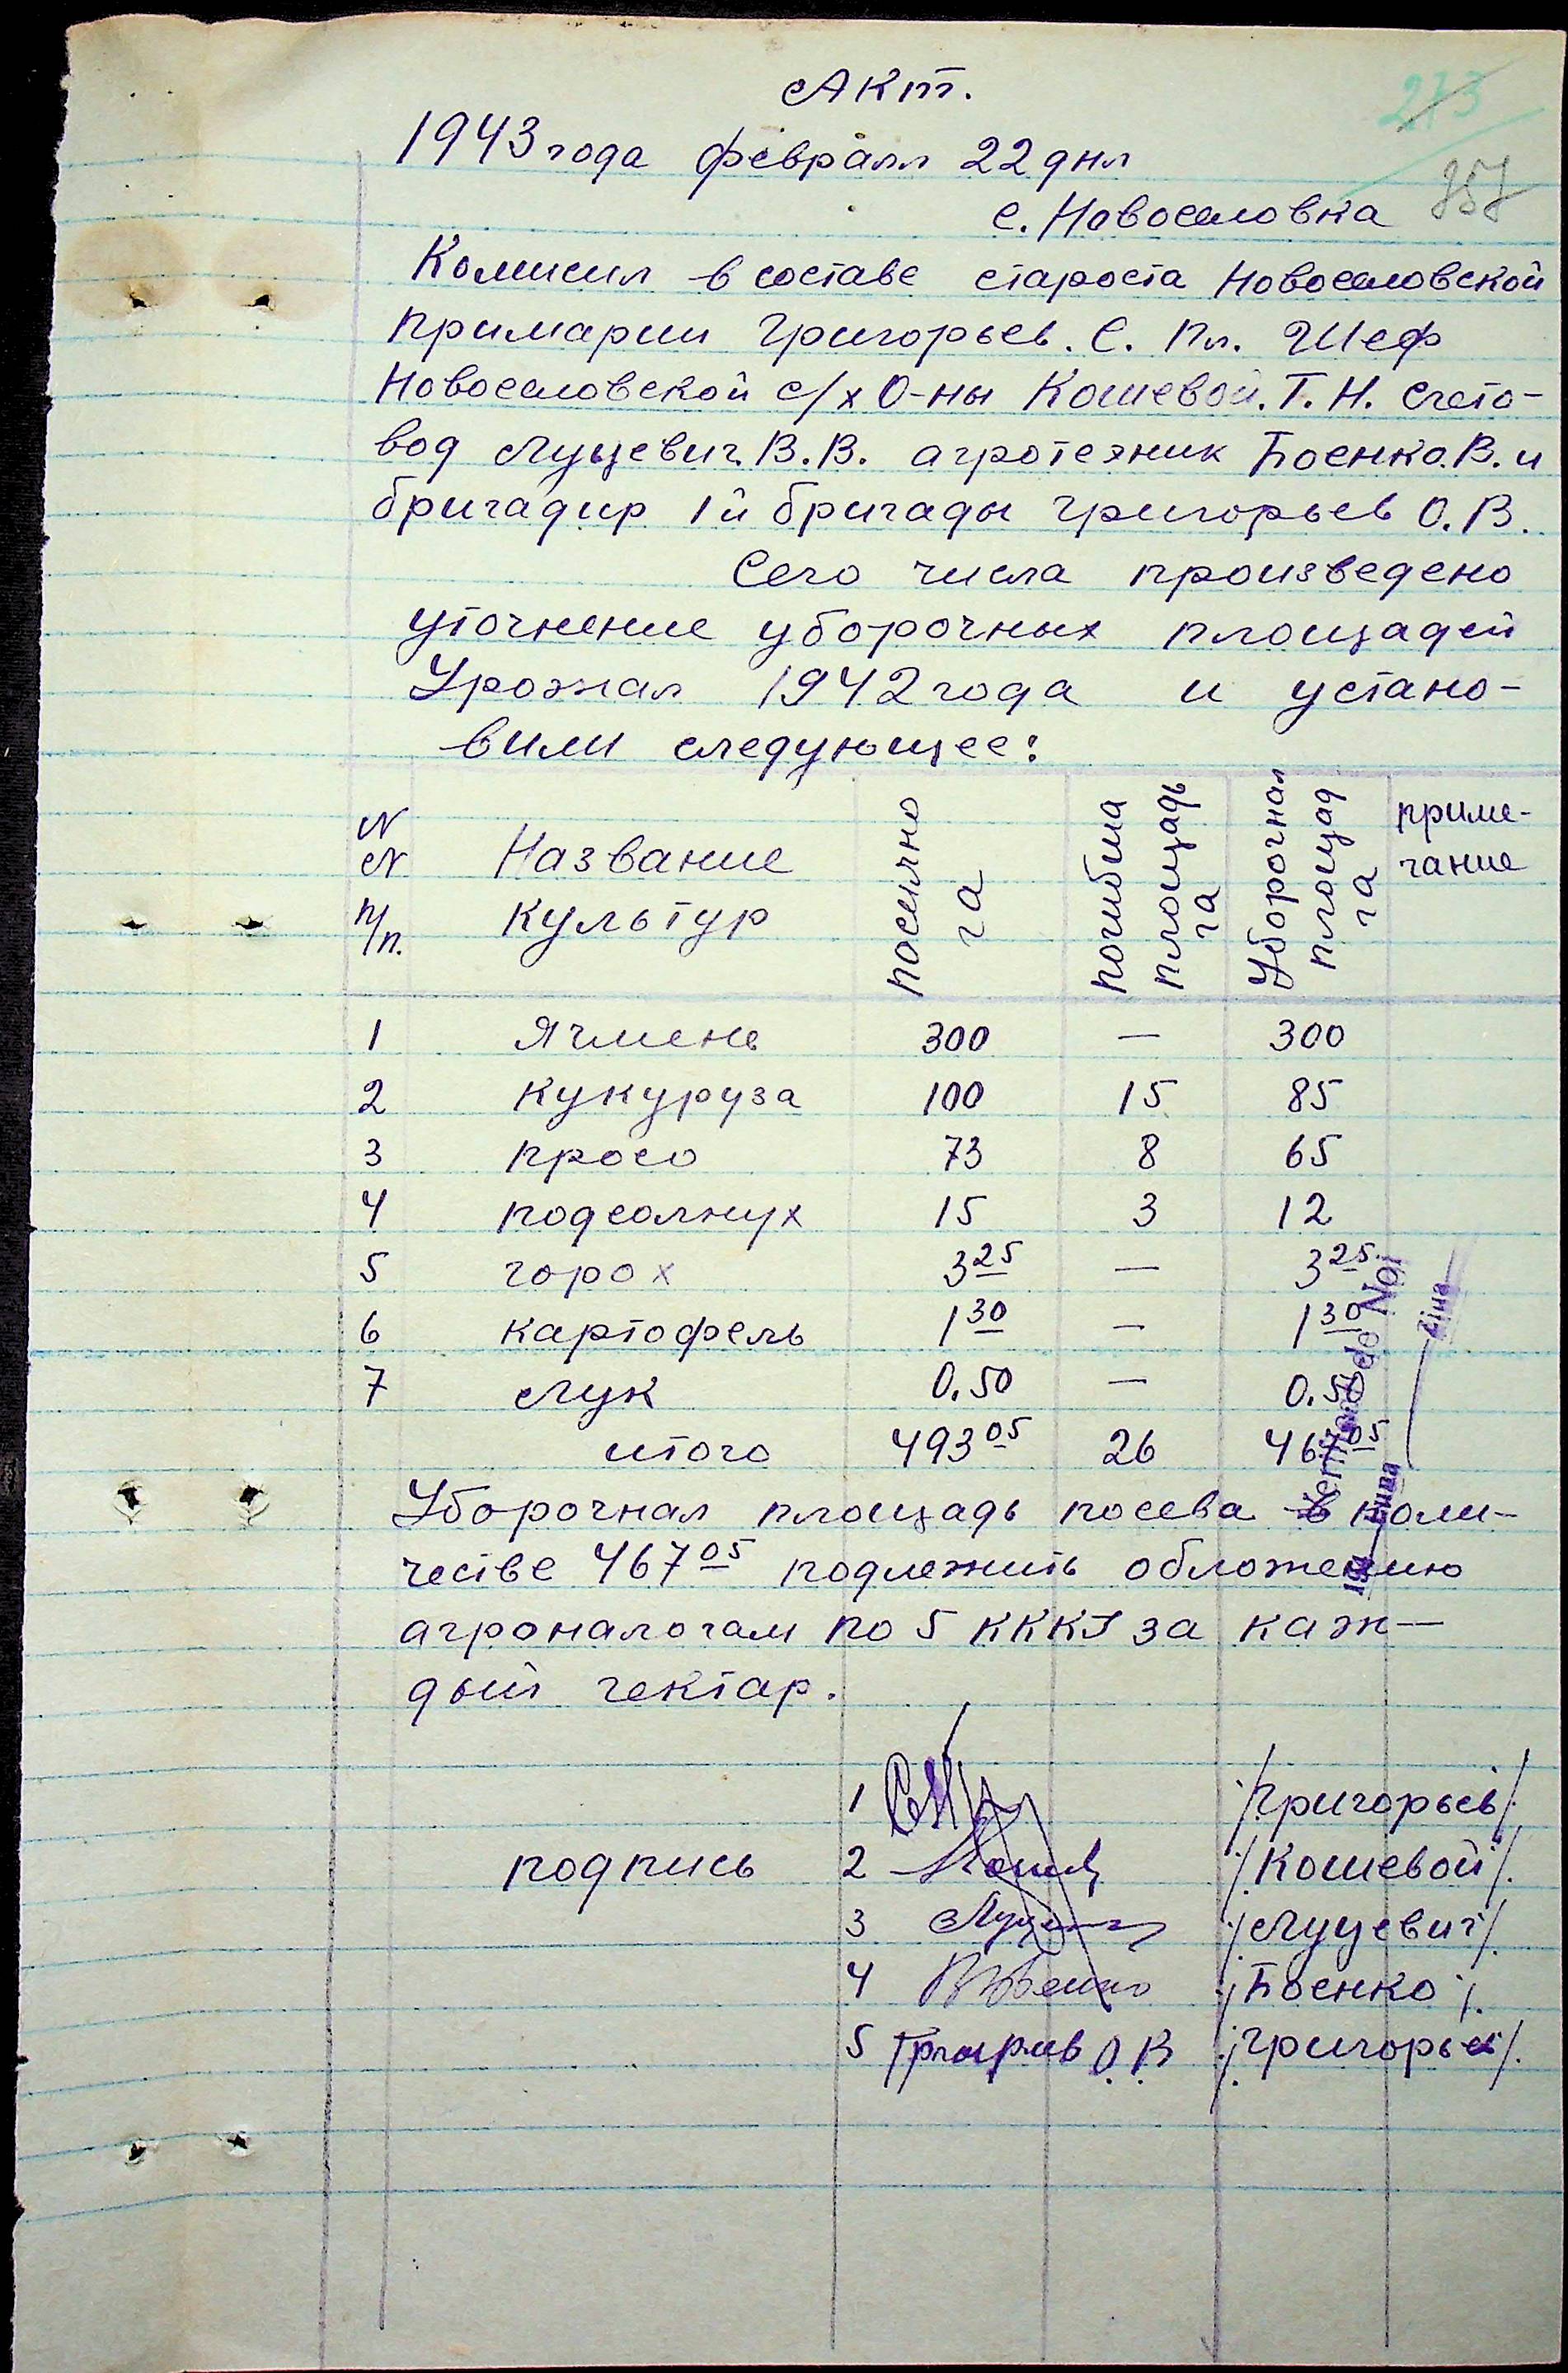 Акт.
273
1943 года февраля 22 дня
357
с. Новоселовка
Комисия в составе староста Новоселовской
примарии Григорьев. С. Пл. Шеф
Новоселовской с/х О-ны Кошевой. Т. Н. Счето-
вод Луцевич В. В. агротехник Боенко. В. и
бригадир 1й бригады Григорьев О. В.
Сего числа произведено
уточнение уборочных площадей
Урожая 1942 года и устано-
вили следующее:
N N п/п. Название культур посеяно га погибша площадь га Уборочная площад га приме-чание
1 Ячмень 300 — 300
2 Кукуруза 100 15 85
3 просо 73 8 65
4 подсолнух 15 3 12
5 горох 3 25 — 3 25
6 картофель 1 30 — 1 30
7 Лук 0.50 — 0.50
итого 493 05 26 467 05
Уборочная площадь посева в коли-
честве 467 05 подлежить обложению
агроналогам по 5 КККЗ за каж-
дый гектар.
de Noi
194
1 /Григорьев/
подпись 2 /Кошевой/.
3 /Луцевич/.
4 /Боенко/.
5 О. В /Григорьев/.